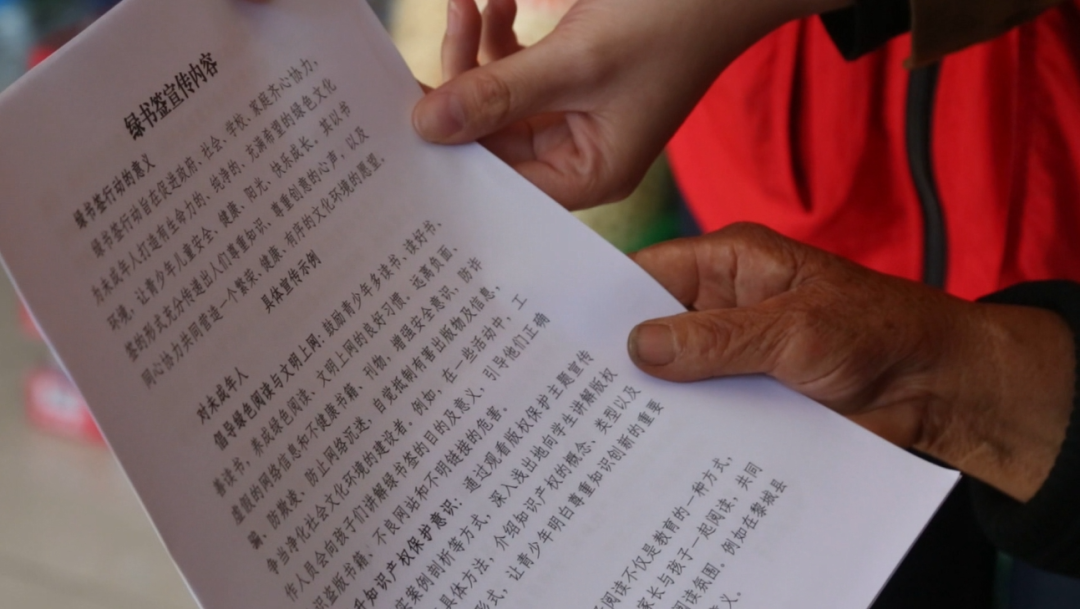 绿书签宣传内容
绿书签行动的意义
绿书签行动旨在促进政府、社会、学校、家庭齐心协力,
为未成年人打造有生命力的、纯净的、充满希望的绿色文化
环境,让青少年儿童安全、健康、阳光、快乐成长。其以书
签的形式充分传递出人们尊重知识、尊重创意的心声,以及
同心协力共同营造一个繁荣、健康、有序的文化环境的愿望。
具体宣传示例
对未成年人
倡导绿色阅读与文明上网:鼓励青少年多读书、读好书、
善读书,养成绿色阅读、文明上网的良好习惯。远离负面、
虚假的网络信息和不健康书籍、刊物,增强安全意识,防诈
骗、防欺凌、防止网络沉迷,自觉抵制有害出版物及信息,
争当净化社会文化环境的建设者。例如,在一些活动中,工
作人员会向孩子们讲解绿书签的目的及意义,引导他们正确
识盗版书籍、不良网站和不明链接的危害。
升知识产权保护意识:通过观看版权保护主题宣传
案例剖析等方式,深入浅出地向学生讲解版权
具体方法,介绍知识产权的概念、类型以及
形式,让青少年明白尊重知识创新的重要
阅读不仅是教育的一种方式,
家长与孩子一起阅读,共同
阅读氛围。例如在黎城县
义。